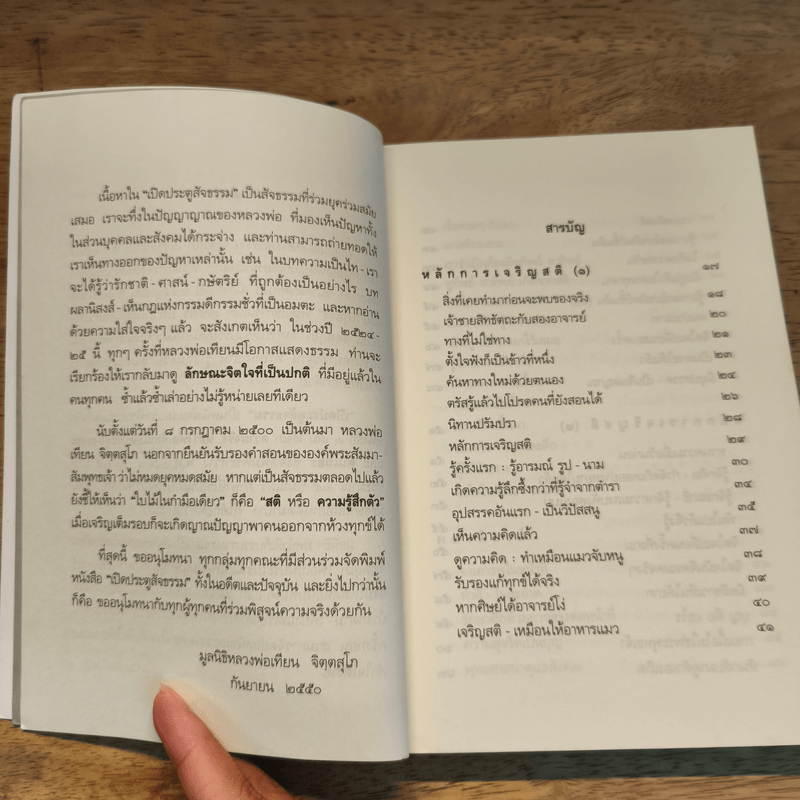 เนื้อหาใน "เปิดประตูสัจธรรม" เป็นสัจธรรมที่ร่วมยุคร่วมสมัย
เสมอ เราจะทึ่งในปัญญาญาณของหลวงพ่อ ที่มองเห็นปัญหาทั้ง
ในส่วนบุคคลและสังคมได้กระจ่าง และท่านสามารถถ่ายทอดให้
เราเห็นทางออกของปัญหาเหล่านั้น เช่น ในบทความเป็นไท - เรา
จะได้รู้ว่ารักชาติ - ศาสน์ - กษัตริย์ ที่ถูกต้องเป็นอย่างไร บท
ผลานิสงส์ - เห็นกฎแห่งกรรมดีกรรมชั่วที่เป็นอมตะ และหากอ่าน
ด้วยความใส่ใจจริงๆ แล้ว จะสังเกตเห็นว่า ในช่วงปี ๒๕๒๔-
๒๕ นี้ ทุกๆ ครั้งที่หลวงพ่อเทียนมีโอกาสแสดงธรรม ท่านจะ
เรียกร้องให้เรากลับมาดู ลักษณะจิตใจที่เป็นปกติ ที่มีอยู่แล้วใน
คนทุกคน ซ้ำแล้วซ้ำเล่าอย่างไม่รู้หน่ายเลยทีเดียว
นับตั้งแต่วันที่ ๘ กรกฎาคม ๒๕๐๐ เป็นต้นมา หลวงพ่อ
เทียน จิตฺตสุโภ นอกจากยืนยันรับรองคำสอนขององค์พระสัมมา-
สัมพุทธเจ้าว่าไม่หมดยุคหมดสมัย หากแต่เป็นสัจธรรมตลอดไปแล้ว
ยังชี้ให้เห็นว่า "ใบไม้ในกำมือเดียว" ก็คือ "สติ หรือ ความรู้สึกตัว"
เมื่อเจริญเต็มรอบก็จะเกิดญาณปัญญาพาคนออกจากห้วงทุกข์ได้
ที่สุดนี้ ขออนุโมทนา ทุกกลุ่มทุกคณะที่มีส่วนร่วมจัดพิมพ์
หนังสือ "เปิดประตูสัจธรรม" ทั้งในอดีตและปัจจุบัน และยิ่งไปกว่านั้น
ก็คือ ขออนุโมทนากับทุกผู้ทุกคนที่ร่วมพิสูจน์ความจริงด้วยกัน
มูลนิธิหลวงพ่อเทียน จิตฺตสุโภ
กันยายน ๒๕๕๐
สารบัญ
หลักการเจริญสติ (๑) ๑๗
สิ่งที่เคยทำมาก่อนจะพบของจริง ๑๘
เจ้าชายสิทธัตถะกับสองอาจารย์ ๒๐
ทางที่ไม่ใช่ทาง ๒๑
ตั้งใจฟังก็เป็นข้าวที่หนึ่ง ๒๓
ค้นหาทางใหม่ด้วยตนเอง ๒๔
ตรัสรู้แล้วไปโปรดคนที่ยังสอนได้ ๒๖
นิทานปรัมปรา ๒๘
หลักการเจริญสติ ๒๙
รู้ครั้งแรก : รู้อารมณ์ รูป - นาม ๓๐
เกิดความรู้ลึกซึ้งกว่าที่รู้จำจากตำรา ๓๔
อุปสรรคอันแรก - เป็นวิปัสสนู ๓๕
เห็นความคิดแล้ว ๓๗
ดูความคิด : ทำเหมือนแมวจับหนู ๓๘
รับรองแก้ทุกข์ได้จริง ๓๙
หากศิษย์ได้อาจารย์โง่ ๔๐
เจริญสติ - เหมือนให้อาหารแมว ๔๑